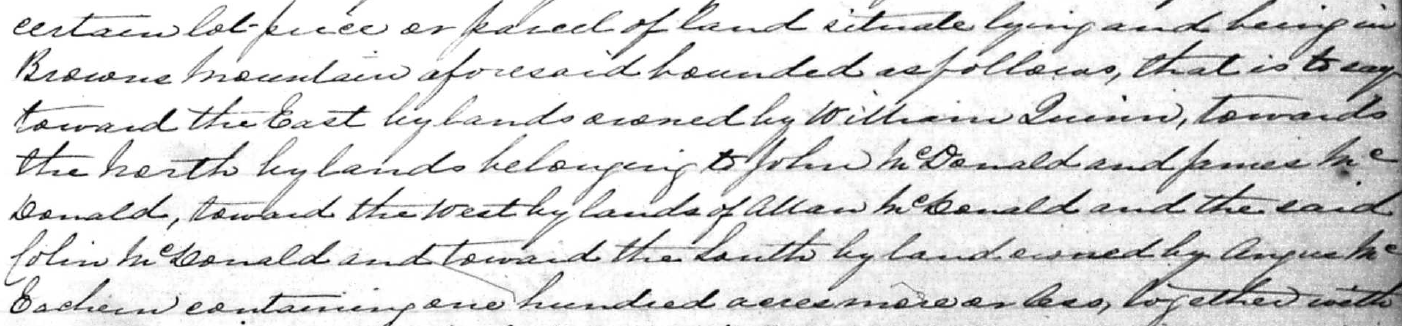 certain lot piece or parcel of land situate lying and being in
Browns Mountain aforesaid bounded as follows, that is to say
toward the East by lands owned by William Quinn, towards
the North by lands belonging to John McDonald and James Mc
Donald, toward the West by lands of Allan McDonald and the said
Colin McDonald and toward the South by land owned by Angus Mc
Eachern containing one hundred acres more or less, together with